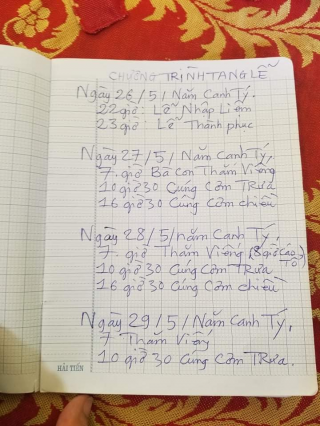 CHƯƠNG TRÌNH TANG LỄ
Ngày 26/5/ Năm Canh Tý.
22 giờ: Lễ Nhập Liệm
23 giờ: Lễ Thành phục
Ngày 27/5/ Năm Canh Tý,
7 giờ Bà Con Thăm Viếng
10 giờ 30 Cúng Cơm TRưa
16 giờ 30 Cúng Cơm chiều
Ngày 28/5/ năm Canh Tý,
7 giờ Thăm Viếng (8 giờ Cáo Tổ)
10 giờ 30 Cúng Cơm TRưa
16 giờ 30 Cúng Cơm chiều
Ngày 29/5/ Năm Canh Tý,
7 Thăm Viếy
10 giờ 30 Cúng Cơm TRưa.
HẢI TIẾN